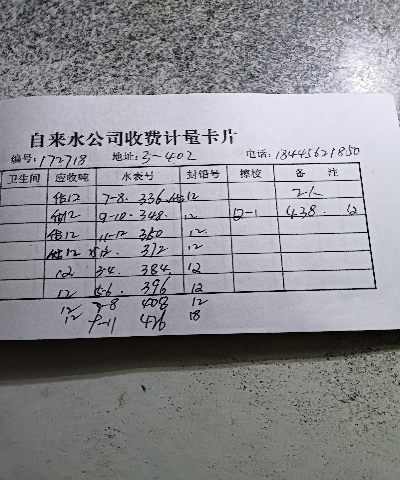 自来水公司收费计量卡片
编号:172718 地址:3-402 电话:18445621850
卫生间 应收吨 水表号 封铅号 擦校 备 注
估12 7-8. 336 估12 2人
估12 9-10. 348. 12 12-1 438. 12
估12 11-12 360 12
估12 1-2. 372 12
12 3-4. 384. 12
12 5-6. 396 12
12 7-8 408 12
12 9-11 426 18